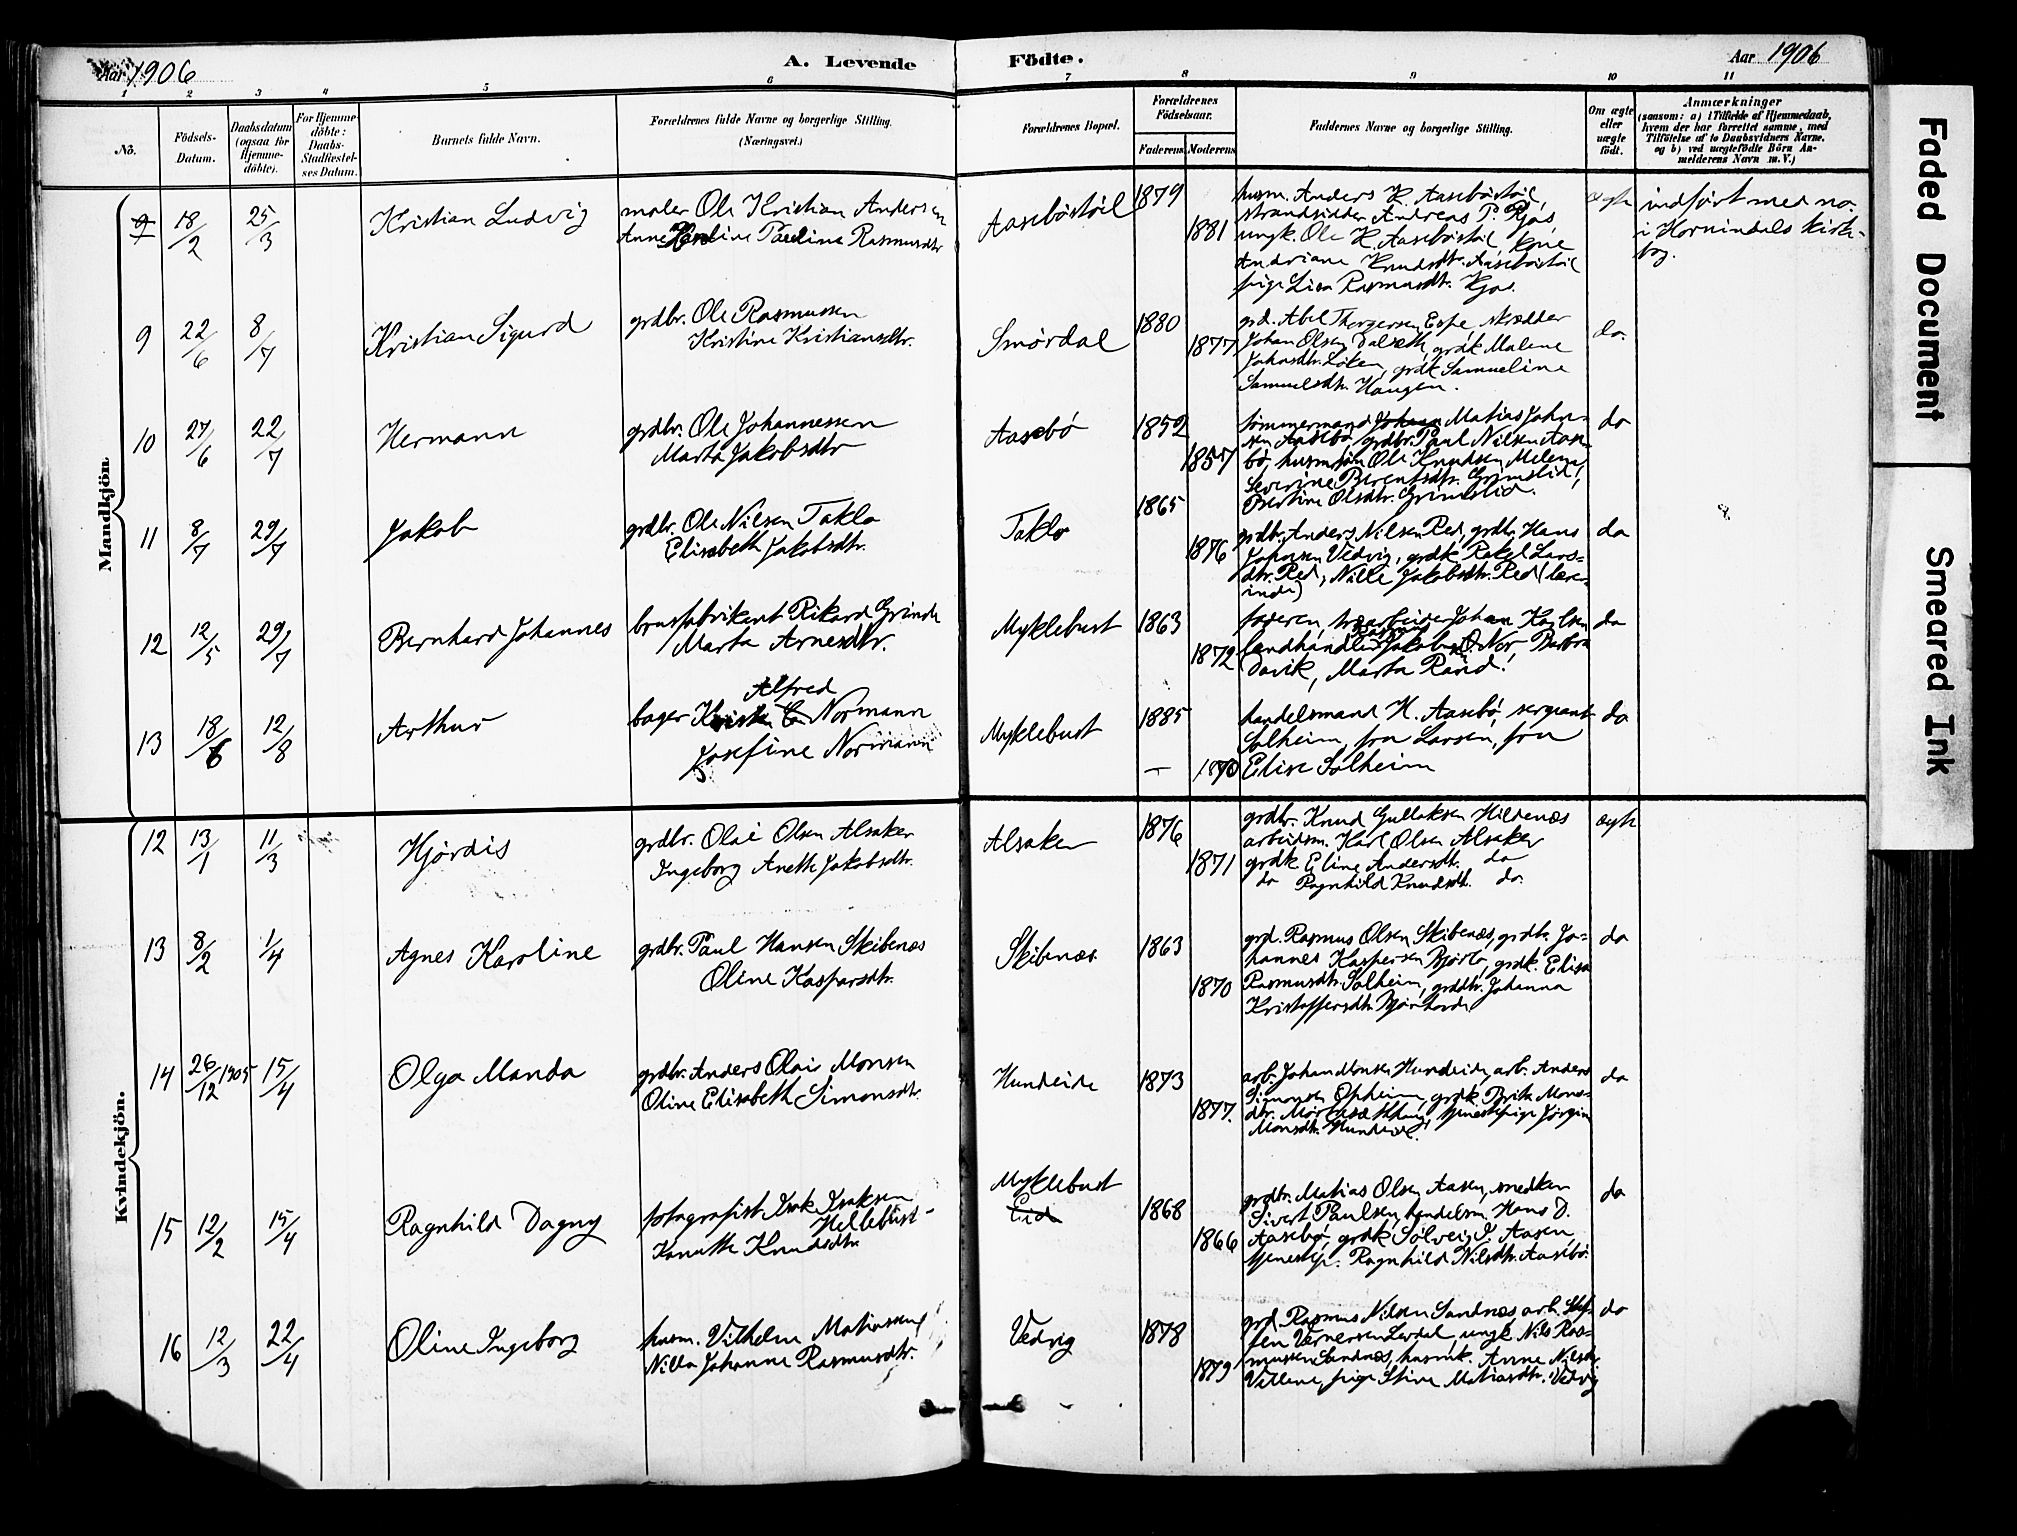 Aar 1906
A. Levende Födte.
Aar 1906
1 2 3 4 5 6 7 8 9 10 11
No.
Födsels-Datum.
Daabsdatum (ogsaa for Hjemme-döbte).
For Hjemme-döbte: Daabs-Stadfæstel-ses Datum.
Barnets fulde Navn.
Forældrenes fulde Navne og borgerlige Stilling.
(Næringsvei.)
Forældrenes Bopæl.
Forældrenes Födselsaar.
Faderens. Moderens.
Faddernes Navne og borgerlige Stilling.
Om ægte eller uægte födt.
Anmærkninger
(saasom: a) i Tilfælde af Hjemmedaab,
hvem der har forrettet samme, med
Tilföielse af to Daabsvidners Navne,
og b) ved uægtefödte Börn An-
melderens Navn m. V.)
Mandkjön.
9 18/2 25/3 Kristian Ludvig
maler Ole Kristian Andersen
Anne Pauline Rasmusdtr
Aasebøstøil 1879 1881
husm. Anders K. Aasebøstøil,
strandsidder Andreas P. Kjøs,
ungk. Ole K. Aasebøstøil, kone
Andriane Knudsdtr. Aasebøstøil
pige Lisa Rasmusdtr. Kjøs.
ægte
indført med no.
i Hornindals kirke-
bog.
9 22/6 8/7 Kristian Sigurd
grdbr. Ole Rasmussen
Kristine Kristiansdtr.
Smørdal 1880 1877
grd. Abel Thorgersen Espe skrædder
Johan Olsen Dalseth, grdk Malene
Johansdtr. Løken, grdk Samueline
Samuelsdtr. Haugen.
do.
10 27/6 22/7 Hermann
grdbr. Ole Johannessen
Marta Jakobsdtr
Aasebø 1852 1857
tømmermand Matias Johan-
sen Aasebø, grdbr. Paul Nilsen Aase-
bø, husmsøn Ole Knudsen Melene,
Severine Berentsdtr. Grimslid,
Bertine Olsdtr. Grimslid.
do
11 8/7 29/7 Jakob
grdbr. Ole Nilsen Taklo
Elisabeth Jakobsdtr.
Taklo 1865 1876
grdbr. Anders Nilsen Red, grdbr. Hans
Johansen Vedvig, grdk Rakel Lars-
dtr. Red, Nille Jakobsdtr. Red (lære-
inde)
do
12 12/5 29/7 Bernhard Johannes
brusfabrikant Rikard Grinde
Marta Arnesdtr.
Myklebust 1863 1872
faderen, træarbeider Johan Karlsen
landhandler Jakob O. Nor, Barbra
Davik, Marta Rand.
do
13 18/6 12/8 Arthur
Alfred
bager Normann
Josefine Normann
Myklebust 1885 – 1870
handelsmand H. Aasebø, sergeant
Solheim, fru Larsen, fru
Elise Solheim
do
Kvindekjön.
12 13/1 11/3 Hjørdis
grdbr. Olai Olsen Alsaker
Ingeborg Anette Jakobsdtr.
Alsaker 1876 1871
grdbr. Knud Gullaksen Hildenæs
arbeidsm. Karl Olsen Alsaker
grdk Eline Andersdtr. do
do Ragnhild Knudsdt. do.
ægte
13 8/2 1/4 Agnes Karoline
grdbr. Paul Hansen Skibenæs
Oline Kasparsdtr.
Skibenæs 1863 1870
grd. Rasmus Olsen Skibenæs, grdbr. Jo-
hannes Kaspersen Bjørlo, grdk. Elisa
Rasmusdtr. Solheim, grddtr. Johanna
Kristoffersdtr.
do
14 26/12 1905 15/4 Olga Manda
grdbr. Anders Olai Monsen
Oline Elisabeth Simonsdtr.
Hundeide 1873 1877.
arb. Johan Monsen Hundeide, arb. Anders
Simonsen Opheim, grdk Brite Mons-
dtr. tjenestepige Jørgine
Monsdt. Hundeide.
do
15 12/2 15/4 Ragnhild Dagny
fotografist Isak Isaksen
Hellebust –
Knudsdtr.
Myklebust
Eid
1868 1866
grdbr. Matias Olsen Aasen, snedker
Sivert Paulsen, handelsm. Hans D.
Aasebø, grdk Solveig I. Aasen,
tjenestep. Ragnhild Nilsdtr. Aasebø.
do
16 12/3 22/4 Oline Ingeborg
husm. Vilhelm Matiassen
Nilla Johanne Rasmusdtr.
Vedvig 1878 1879
grd. Rasmus Nilsen Sandnæs arb. Stef-
fen Vernersen Lerdal, ungk. Nils Ras-
mussen Sandnæs, husmk. Anne Nilsdtr.
pige Stina Matiasdtr. Vedvig
do
Faded Document
Smeared Ink